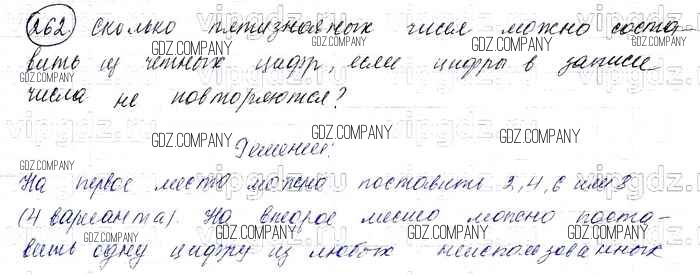 262 Сколько пятизначных чисел можно соста-
вить из четных цифр, если цифры в записи
числа не повторяются?
Решение:
На первое место можно поставить 2, 4, 6 или 8
(4 варианта). На второе место можно поста-
вить одну цифру из любых неиспользованных
GDZ.COMPANY
vipgdz.ru